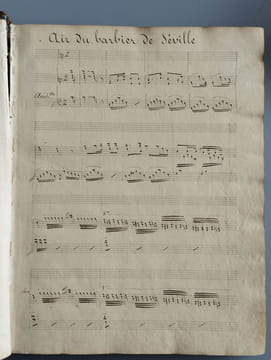 Air du barbier de Séville
And.no